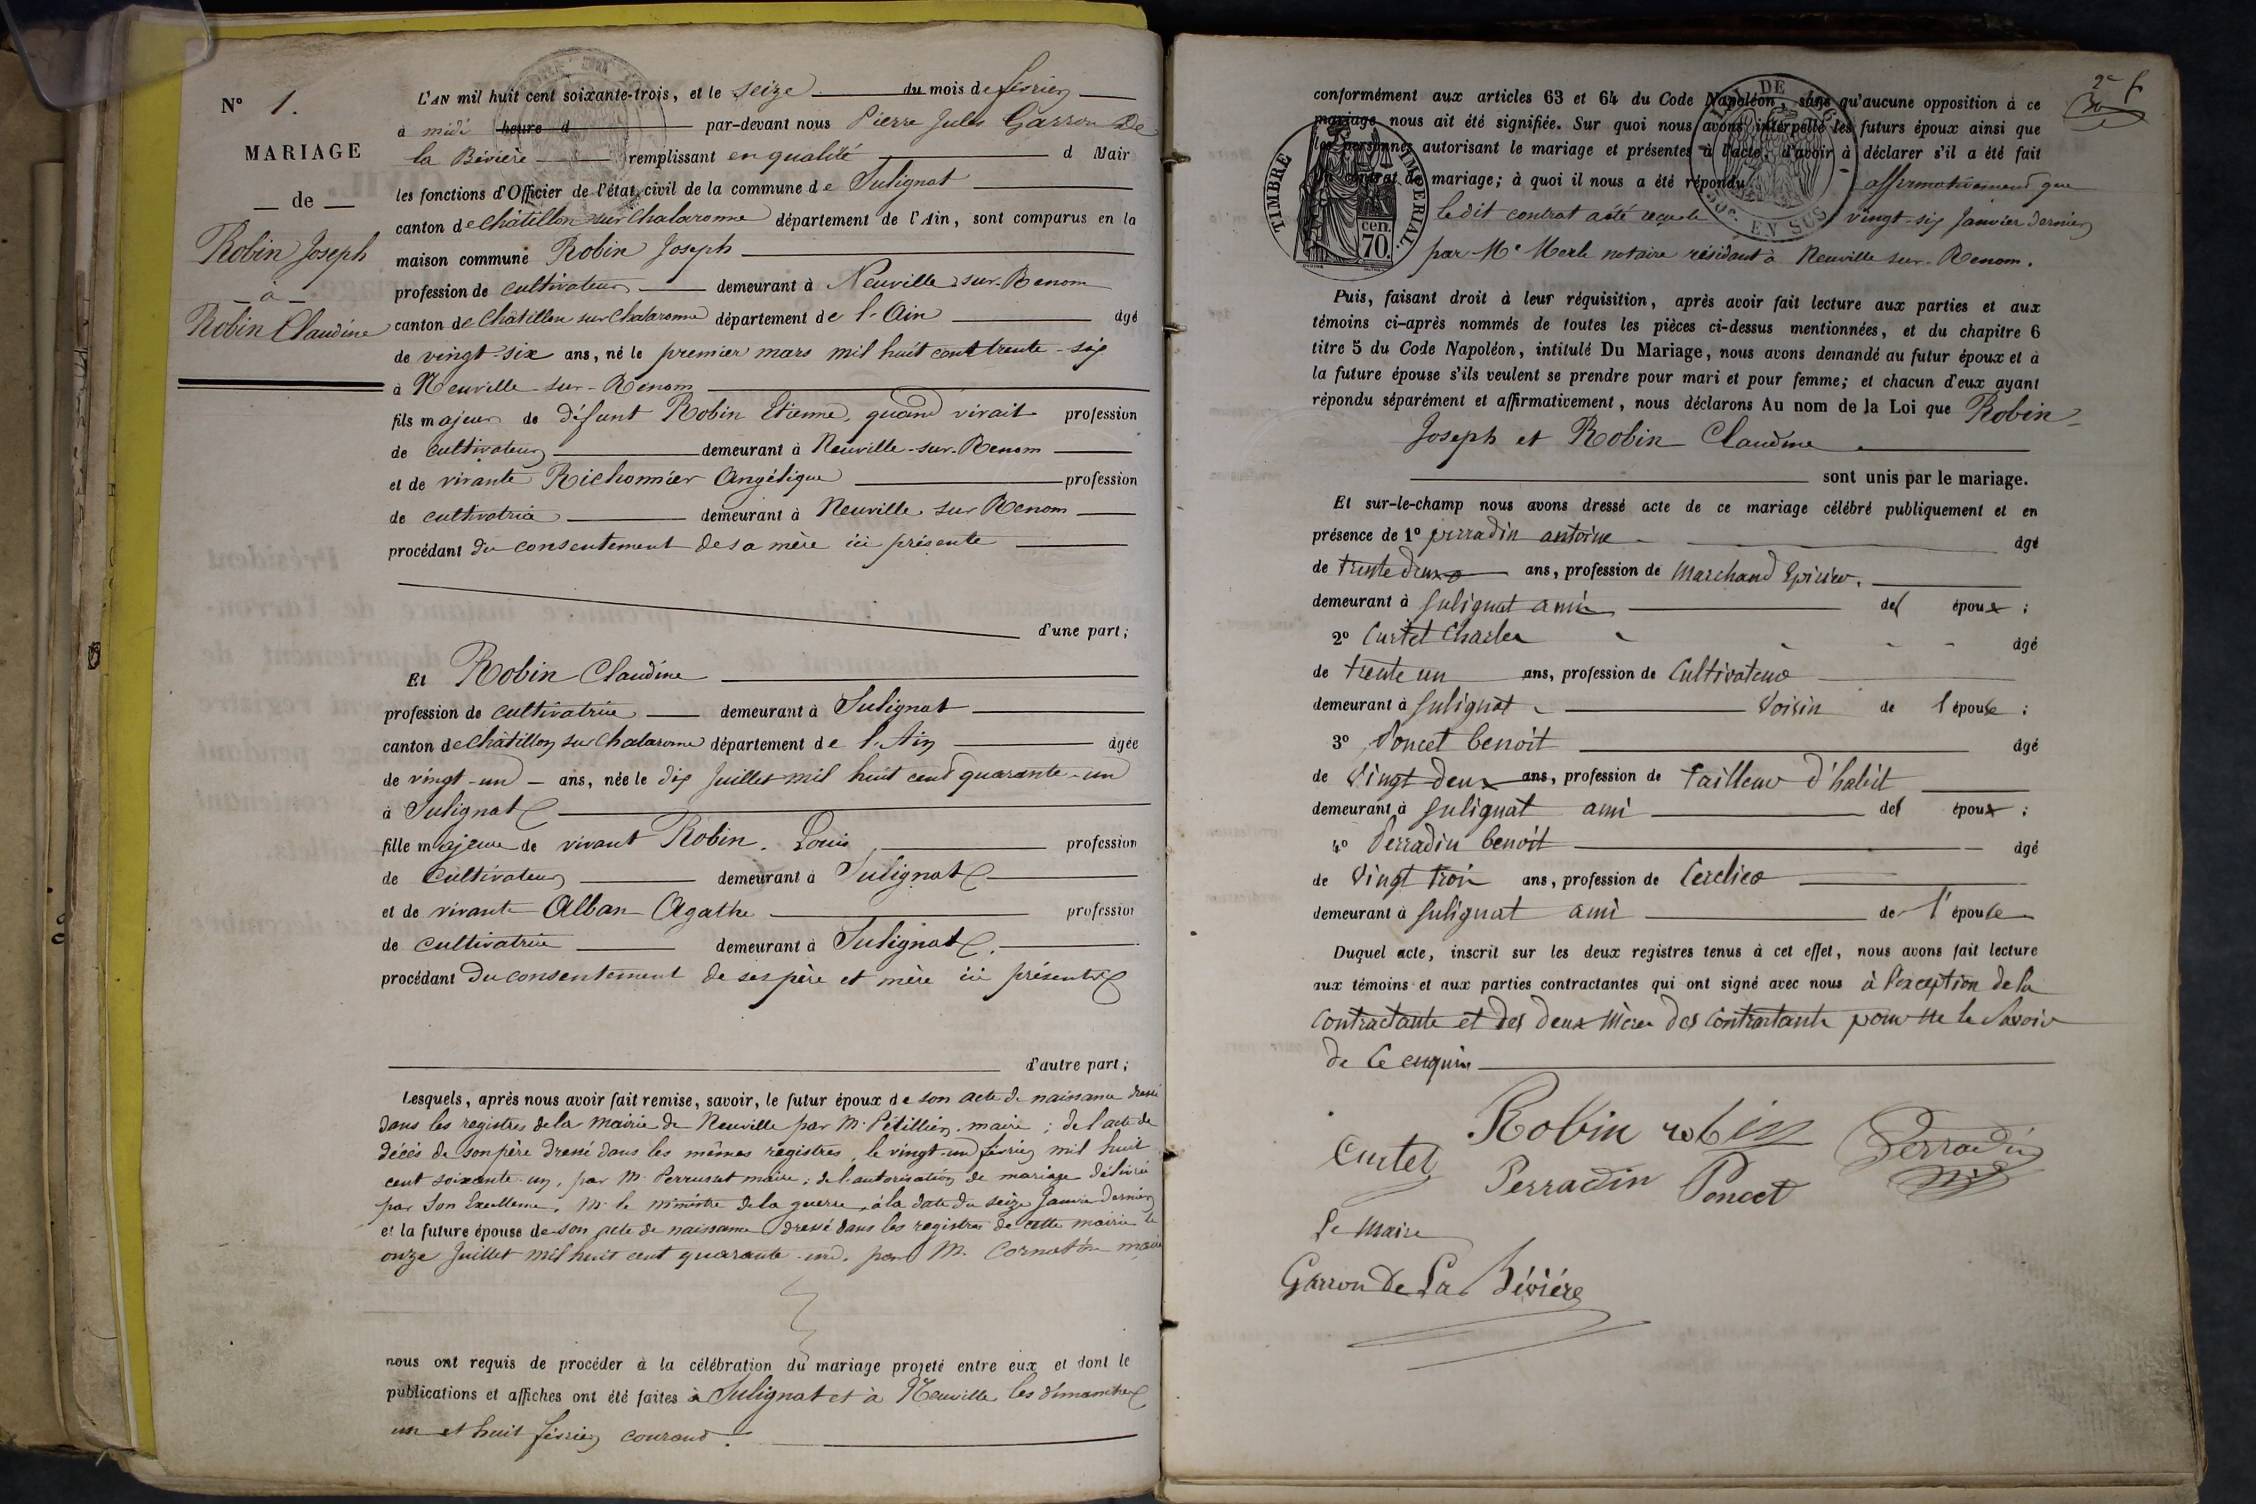 N° 1.
MARIAGE
de
Robin Joseph
à
Robin Claudine
L'AN mil huit cent soixante-trois, et le seize du mois de février
à midi heure d par-devant nous Pierre Jules Garron De
la Bévière remplissant en qualité d Mair
les fonctions d'Officier de l'état civil de la commune de Sulignat
canton de Châtillon sur Chalaronne département de l'Ain, sont comparus en la
maison commune Robin Joseph
profession de cultivateur demeurant à Neuville-sur-Renom
canton de Châtillon sur Chalaronne département de l'Ain âgé
de vingt-six ans, né le premier mars mil huit cent trente-six
à Neuville-sur-Renom
fils majeur de défunt Robin Etienne, quand vivait profession
de cultivateur demeurant à Neuville-sur-Renom
et de vivante Richonnier Angélique profession
de cultivatrice demeurant à Neuville sur Renom
procédant du consentement de sa mère ici présente
d'une part;
Et Robin Claudine
profession de cultivatrice demeurant à Sulignat
canton de Châtillon sur Chalaronne département de l'Ain âgée
de vingt-un ans, née le dix Juillet mil huit cent quarante-un
à Sulignat
fille majeure de vivant Robin Louis profession
de cultivateur demeurant à Sulignat
et de vivante Alban Agathe profession
de cultivatrice demeurant à Sulignat.
procédant du consentement de ses père et mère ici présents
d'autre part;
Lesquels, après nous avoir fait remise, savoir, le futur époux de son acte de naissance dressé
dans les registres de la mairie de Neuville par Mr Pétillier, maire; de l'acte de
décès de son père dressé dans les mêmes registres, le vingt-un février mil huit
cent soixante-un, par M. Perrusset maire; de l'autorisation de mariage délivrée
par Son Excellence, M. le ministre de la guerre, à la date du seize Janvier dernier
et la future épouse de son acte de naissance dressé dans les registres de cette mairie le
onze Juillet mil huit cent quarante-un, par M. Cornaton maire
nous ont requis de procéder à la célébration du mariage projeté entre eux et dont le
publications et affiches ont été faites à Sulignat et à Neuville les dimanches
un et huit février courant.
2e f
conformément aux articles 63 et 64 du Code Napoléon, sans qu'aucune opposition à ce
mariage nous ait été signifiée. Sur quoi nous avons interpellé les futurs époux ainsi que
les personnes autorisant le mariage et présentes à l'acte, d'avoir à déclarer s'il a été fait
un contrat de mariage; à quoi il nous a été répondu affirmativement que
le dit contrat a été reçu le vingt-six Janvier dernier
par Me Merle notaire résidant à Neuville sur-Renom.
TIMBRE IMPÉRIAL
70 cen.
DE
50c. EN SUS
Puis, faisant droit à leur réquisition, après avoir fait lecture aux parties et aux
témoins ci-après nommés de toutes les pièces ci-dessus mentionnées, et du chapitre 6
titre 5 du Code Napoléon, intitulé Du Mariage, nous avons demandé au futur époux et à
la future épouse s'ils veulent se prendre pour mari et pour femme; et chacun d'eux ayant
répondu séparément et affirmativement, nous déclarons Au nom de la Loi que Robin
Joseph et Robin Claudine
sont unis par le mariage.
Et sur-le-champ nous avons dressé acte de ce mariage célébré publiquement et en
présence de 1° perradin antoine âgé
de trente deux ans, profession de Marchand Epicier.
demeurant à Sulignat ami de l époux;
2° Curtet Charles âgé
de trente un ans, profession de Cultivateur
demeurant à Sulignat Voisin de l'épouse;
3° Poncet benoit âgé
de Vingt deux ans, profession de tailleur d'habit
demeurant à Sulignat ami de l époux;
4° Perradin benoit âgé
de Vingt trois ans, profession de Cerclier
demeurant à Sulignat ami de l'épouse
Duquel acte, inscrit sur les deux registres tenus à cet effet, nous avons fait lecture
aux témoins et aux parties contractantes qui ont signé avec nous à l'exception de la
Contractante et des deux Mères des Contractants pour ne le Savoir
de Ce enquis
Robin robin Perradin
Curtet Perradin Poncet
Le Maire
Garron De La Bévière